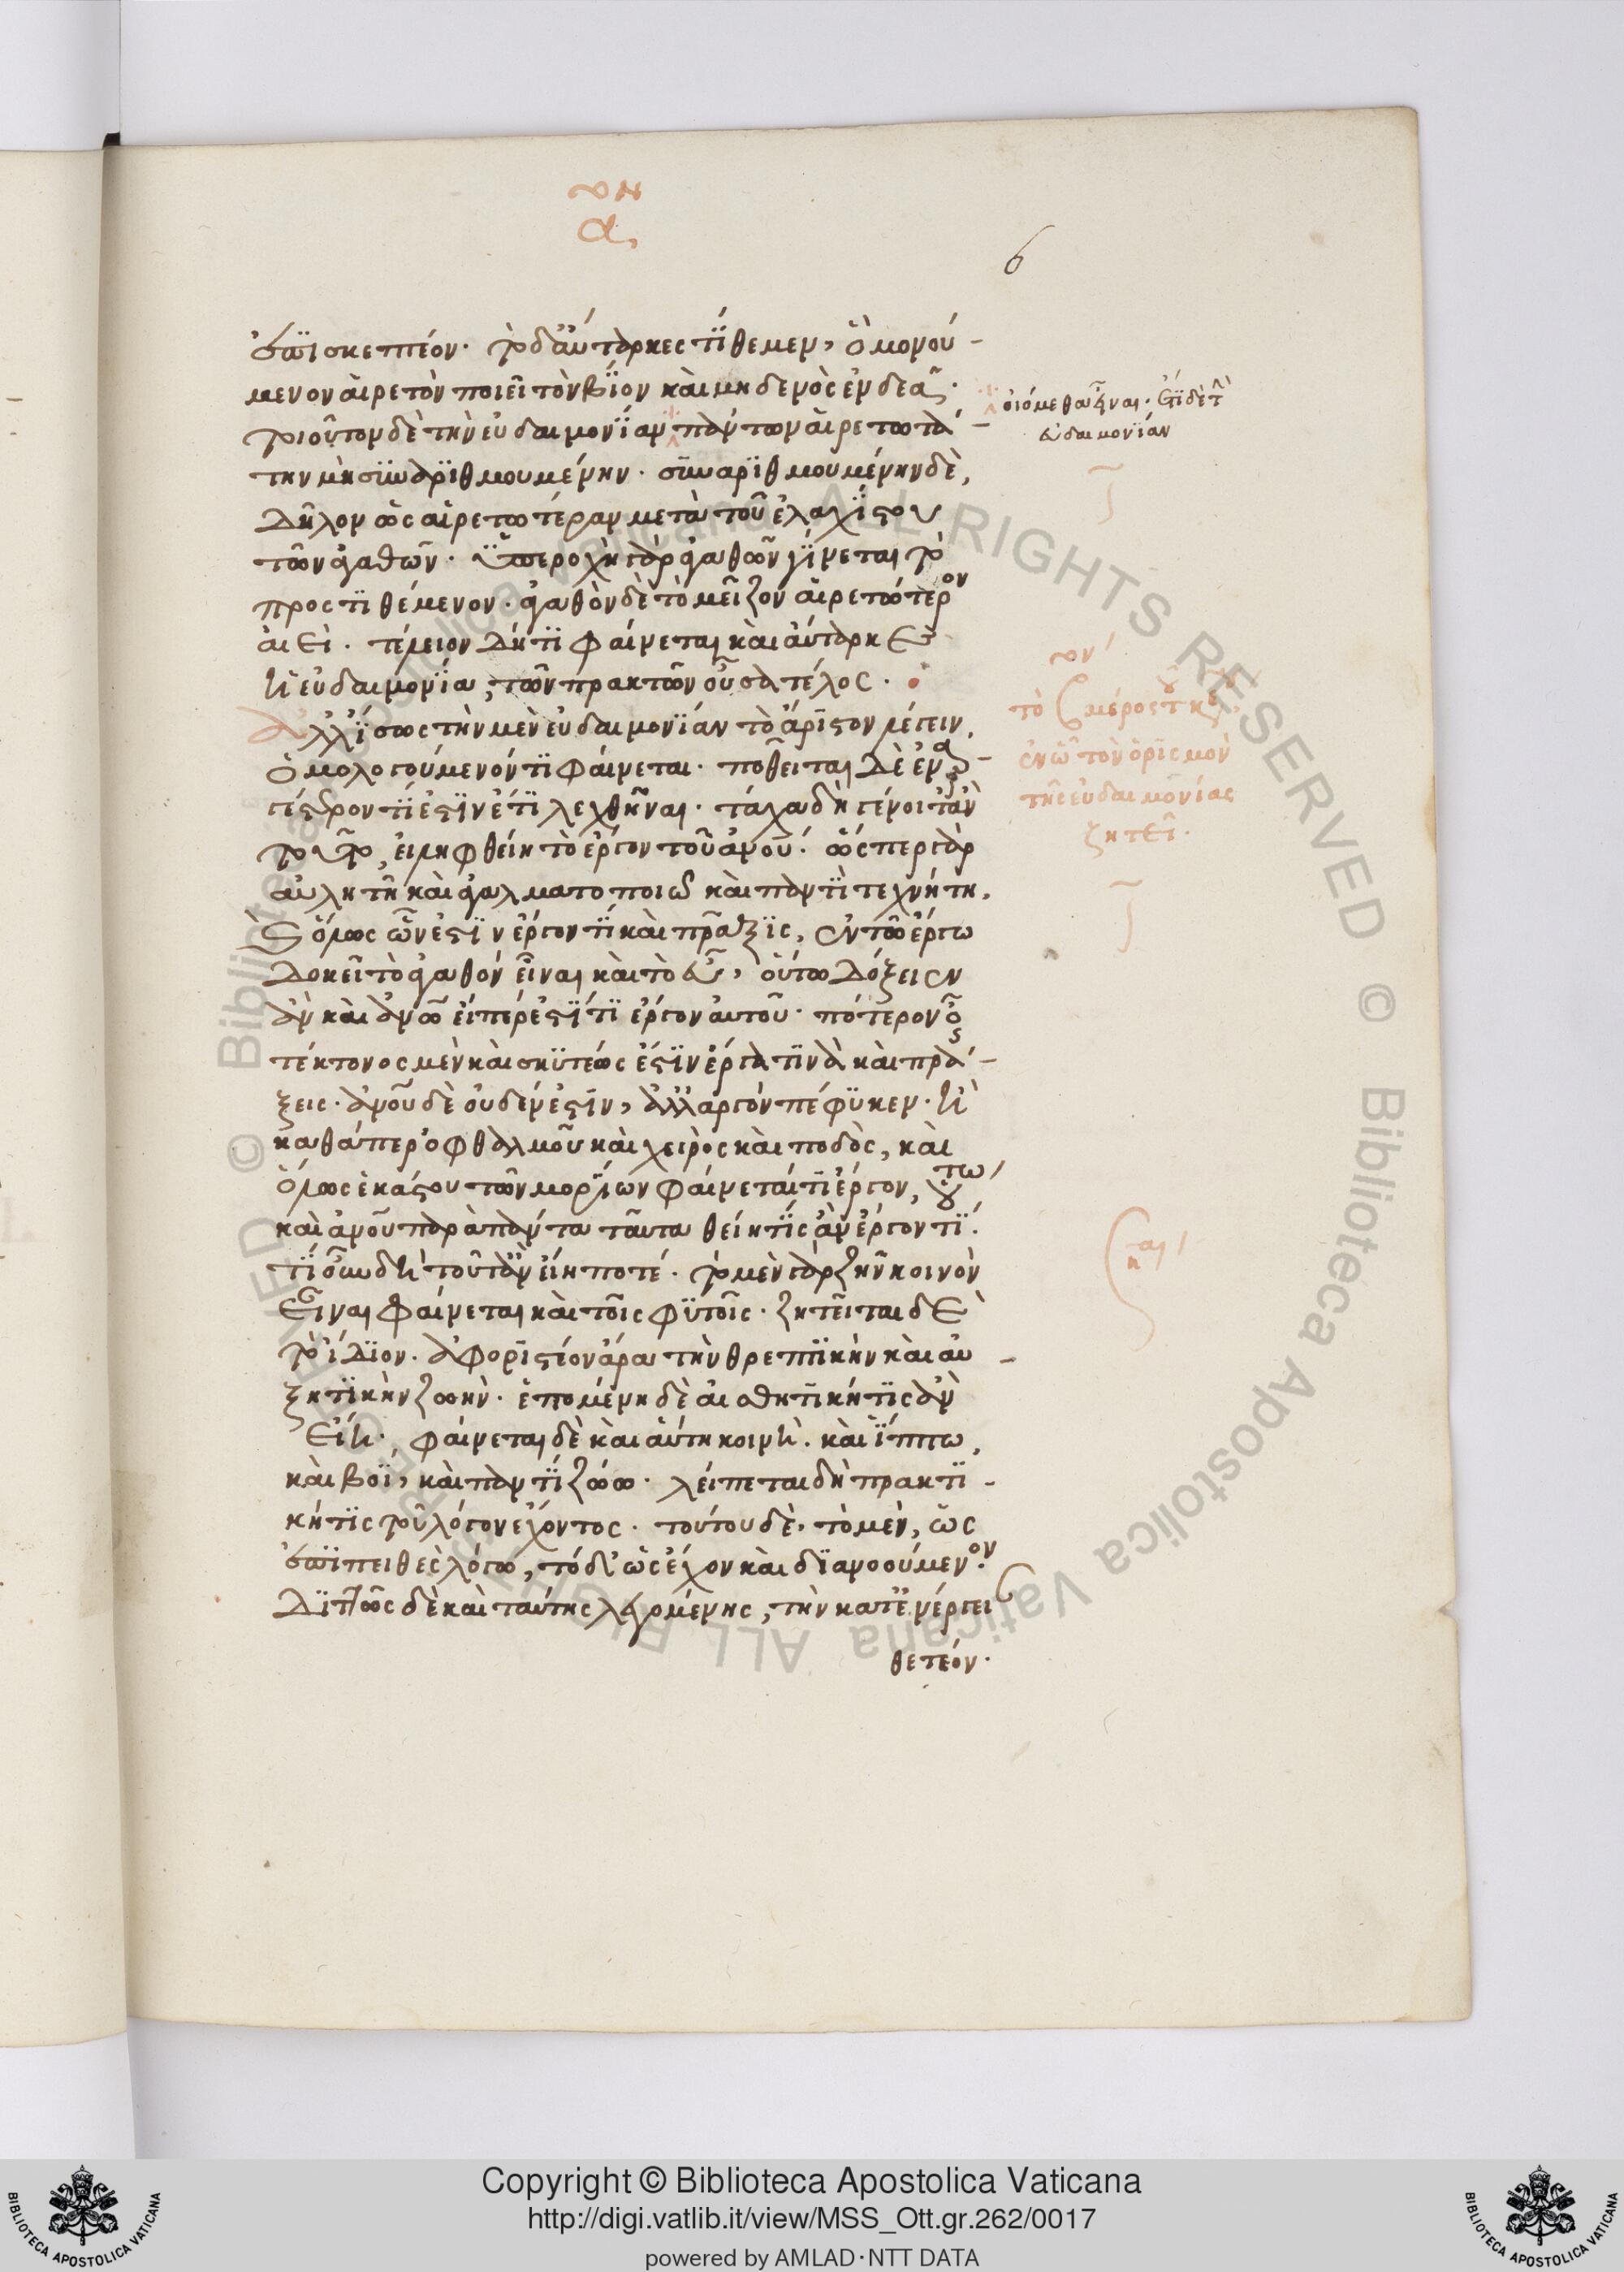 α,
6
ἐπισκεπτέον· τὸ δ' αὔταρκες τίθεμεν, ὃ μονού-
μενον αἱρετὸν ποιεῖ τὸν βίον καὶ μηδενὸς ἐνδεᾶ·
τοιοῦτον δὲ τὴν εὐδαιμονίαν πάντων αἱρετωτά-
την μὴ συναριθμουμένην· συναριθμουμένην δὲ,
δῆλον ὡς αἱρετωτέραν μετὰ τοῦ ἐλαχίστου
τῶν ἀγαθῶν· ὑπεροχὴ γὰρ ἀγαθῶν γίνεται τὸ
προστιθέμενον· ἀγαθὸν δὲ τὸ μεῖζον αἱρετώτερον
ἀεί· τέλειον δή τι φαίνεται καὶ αὔταρκες
ἡ εὐδαιμονία, τῶν πρακτῶν οὖσα τέλος·
ἀλλ' ἴσως τὴν μὲν εὐδαιμονίαν τὸ ἄριστον λέγειν,
ὁμολογούμενόν τι φαίνεται· ποθεῖται δὲ ἐναρ-
γέστερον τί ἐστιν ἔτι λεχθῆναι· τάχα δὴ γένοιτ' ἂν
τοῦτο, εἰ ληφθείη τὸ ἔργον τοῦ ἀνου· ὥσπερ γὰρ
αὐλητῇ καὶ ἀγαλματοποιῷ καὶ παντὶ τεχνίτῃ,
καὶ ὅλως ὧν ἐστὶν ἔργον τι καὶ πρᾶξις, ἐν τῷ ἔργῳ
δοκεῖ τὸ ἀγαθόν εἶναι καὶ τὸ εὖ, οὕτω δόξειεν
ἂν καὶ ἀνῳ εἴπερ ἐστί τι ἔργον αὐτοῦ· πότερον οὖν
τέκτονος μὲν καὶ σκυτέως ἐστὶν ἔργα τινὰ καὶ πρά-
ξεις· ἀνου δὲ οὐδέν ἐστιν, ἀλλ' ἀργὸν πέφυκεν· ἢ
καθάπερ ὀφθαλμοῦ καὶ χειρὸς καὶ ποδὸς, καὶ
ὅλως ἑκάστου τῶν μορίων φαίνεταί τι ἔργον, οὕτω
καὶ ἀνου παρὰ πάντα ταῦτα θείη τις ἂν ἔργον τι·
τί οὖν δὴ τοῦτ' ἂν εἴη ποτέ· τὸ μὲν γὰρ ζῆν κοινὸν
εἶναι φαίνεται καὶ τοῖς φυτοῖς· ζητεῖται δὲ
τὸ ἴδιον· ἀφοριστέον ἄρα τὴν θρεπτικὴν καὶ αὐ-
ξητικὴν ζωὴν· ἑπομένη δὲ αἰσθητική τις ἂν
εἴη· φαίνεται δὲ καὶ αὕτη κοινὴ· καὶ ἵππῳ,
καὶ βοῒ, καὶ παντὶ ζώῳ· λείπεται δὴ πρακτι-
κή τις τοῦ λόγον ἔχοντος· τούτου δὲ, τὸ μὲν, ὡς
ἐπιπειθὲς λόγῳ, τὸ δ' ὡς ἔχον καὶ διανοούμενον·
διττῶς δὲ καὶ ταύτης λεγομένης, τὴν κατ' ἐνέργει
θετέον·
οἰόμεθα εἶναι· ἔτι δὲ τὴν
εὐδαιμονίαν
τὸ β μέρος τοῦ κεφ
ἐν ᾧ τὸν ὁρισμὸν
τῆς εὐδαιμονίας
ζητεῖ·
Copyright © Biblioteca Apostolica Vaticana
http://digi.vatlib.it/view/MSS_Ott.gr.262/0017
powered by AMLAD·NTT DATA
BIBLIOTECA APOSTOLICA VATICANA
BIBLIOTECA APOSTOLICA VATICANA
© Biblioteca Apostolica Vaticana ALL RIGHTS RESERVED © Biblioteca Apostolica Vaticana ALL RIGHTS RESERVED